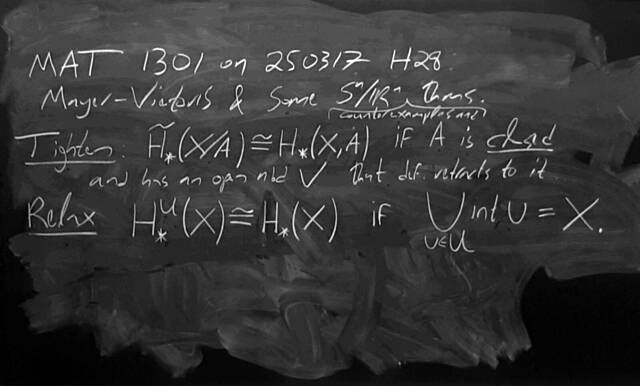 MAT 1301 on 250317 H28:
Mayer-Vietoris & Some Sⁿ/ℝⁿ thms.
(counterexamples and)
Tighten: H̃_*(X/A) ≅ H_*(X,A) if A is closed
and has an open nbd V that def. retracts to it
Relax H_*^𝒰(X) ≅ H_*(X) if ⋃_{U∈𝒰} int U = X.